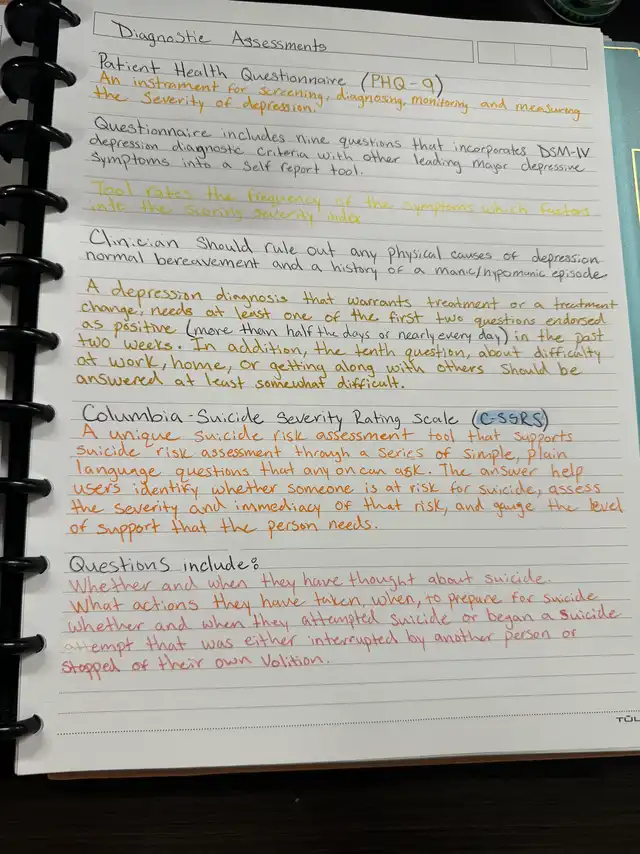 Diagnostic Assessments
Patient Health Questionnaire (PHQ-9)
An instrument for screening, diagnosing, monitoring and measuring
the severity of depression.
Questionnaire includes nine questions that incorporates DSM-IV
depression diagnostic criteria with other leading major depressive
symptoms into a self report tool.
Tool rates the frequency of the symptoms which factors
into the scoring severity index
Clinician should rule out any physical causes of depression
normal bereavement and a history of a manic/hypomanic episode
A depression diagnosis that warrants treatment or a treatment
change, needs at least one of the first two questions endorsed
as positive (more than half the days or nearly every day) in the past
two weeks. In addition, the tenth question, about difficulty
at work, home, or getting along with others should be
answered at least somewhat difficult.
Columbia-Suicide Severity Rating Scale (C-SSRS)
A unique suicide risk assessment tool that supports
suicide risk assessment through a series of simple, plain
language questions that any on can ask. The answer help
users identify whether someone is at risk for suicide, assess
the severity and immediacy of that risk, and gauge the level
of support that the person needs.
Questions include:
Whether and when they have thought about suicide.
What actions they have taken, when, to prepare for suicide
whether and when they attempted suicide or began a suicide
attempt that was either interrupted by another person or
stopped of their own volition.
TÜL